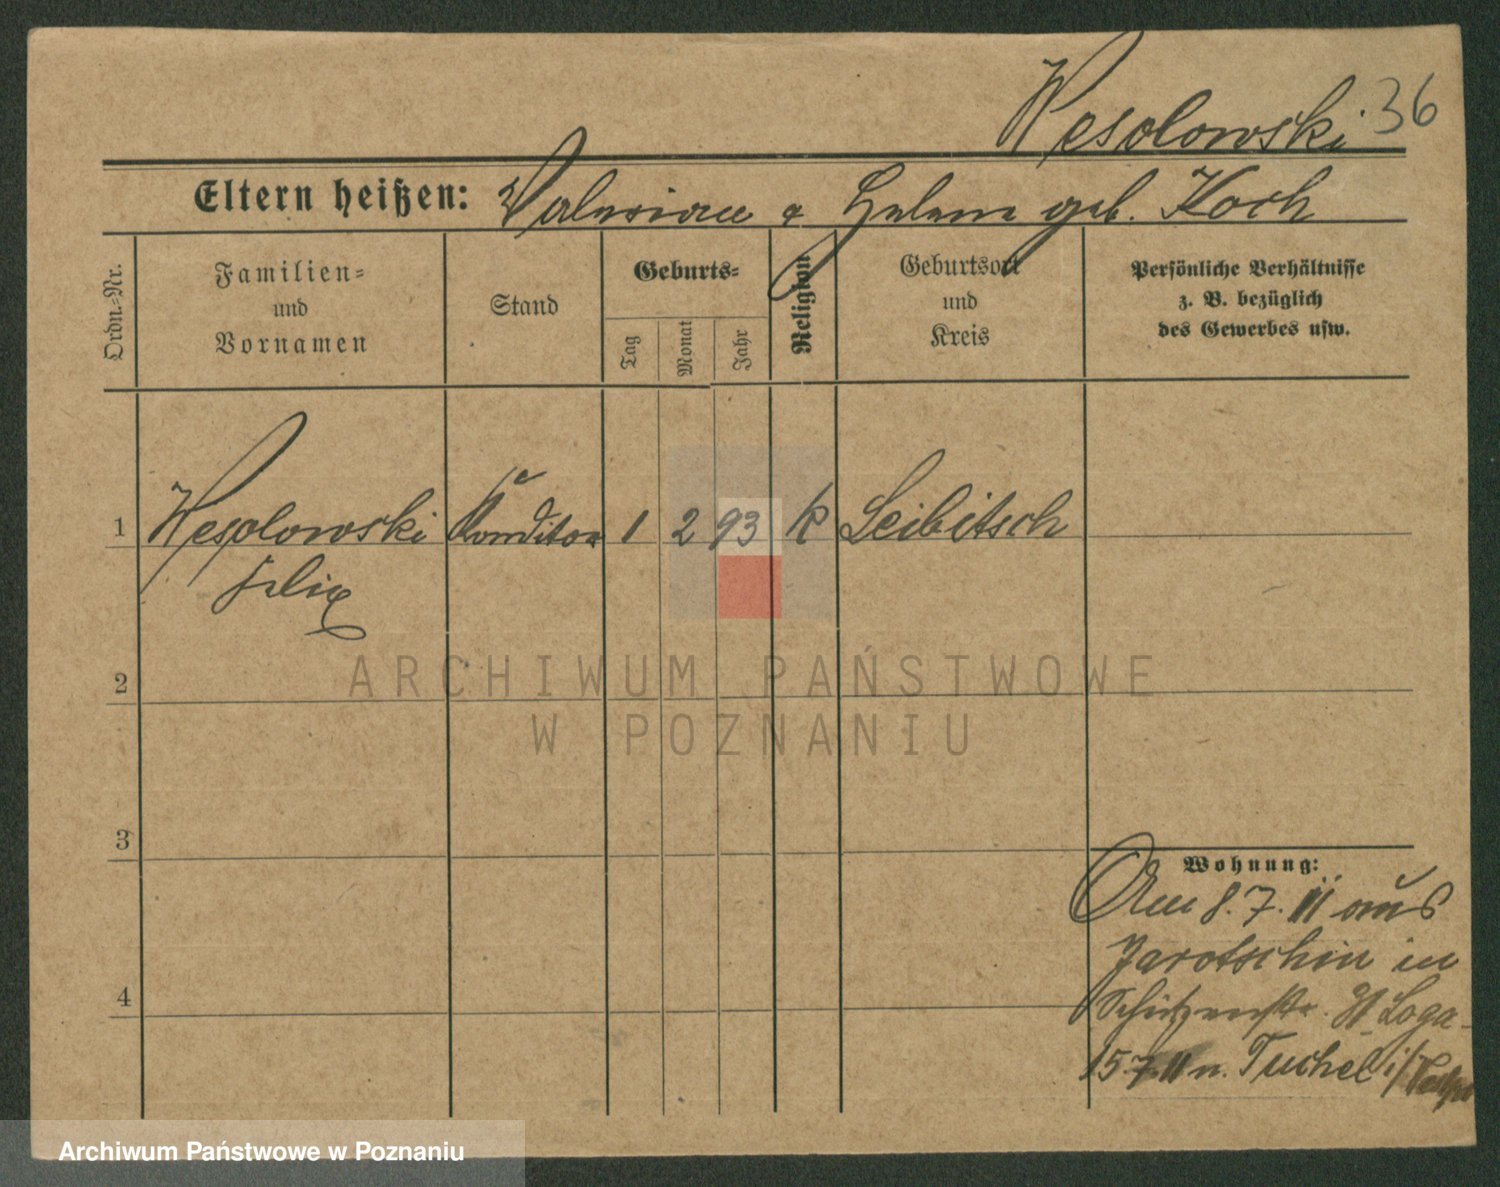 Wesolowski 36
Eltern heißen: Valerian & Helene geb. Koch
Ordn.=Nr.
Familien=
und
Vornamen
Stand
Geburts=
Tag
Monat
Jahr
Religion
Geburtsort
und
Kreis
Persönliche Verhältnisse
z. B. bezüglich
des Gewerbes usw.
1 Wesolowski Konditor 1 2 93 k Leibitsch
Felix
2
3
4
Wohnung:
Am 8.7.11 aus
Jarotschin in
Schützenstr.
15 7 11 n. Tuchel
ARCHIWUM PAŃSTWOWE
W POZNANIU
Archiwum Państwowe w Poznaniu